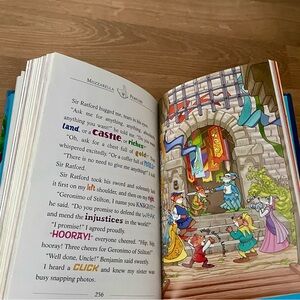 MOZZARELLA
Sir Ratford hugged me, tears in his eyes.
"Ask me for anything, anything,
anything you want!" he told me.
land, or a castle, or riches!"
"Oh, ask for a chest full of gold!"
whispered excitedly. "Or a coffer full of
"There is no need to give me anything!" I
Sir Ratford
Sir Ratford took his sword and solemnly
it first on my left shoulder, and then on my
"Geronimo of Stilton, I name you KNIGHT!"
he said. "Do you promise to defend the
and mend the injustices in the world?"
"I promise!" I agreed proudly.
"HOORAY!" everyone cheered. "Hip, hip,
hooray! Three cheers for Geronimo of Stilton!"
"Well done, Uncle!" Benjamin said sweetly.
I heard a CLICK and knew my sister was
busy snapping photos.
256